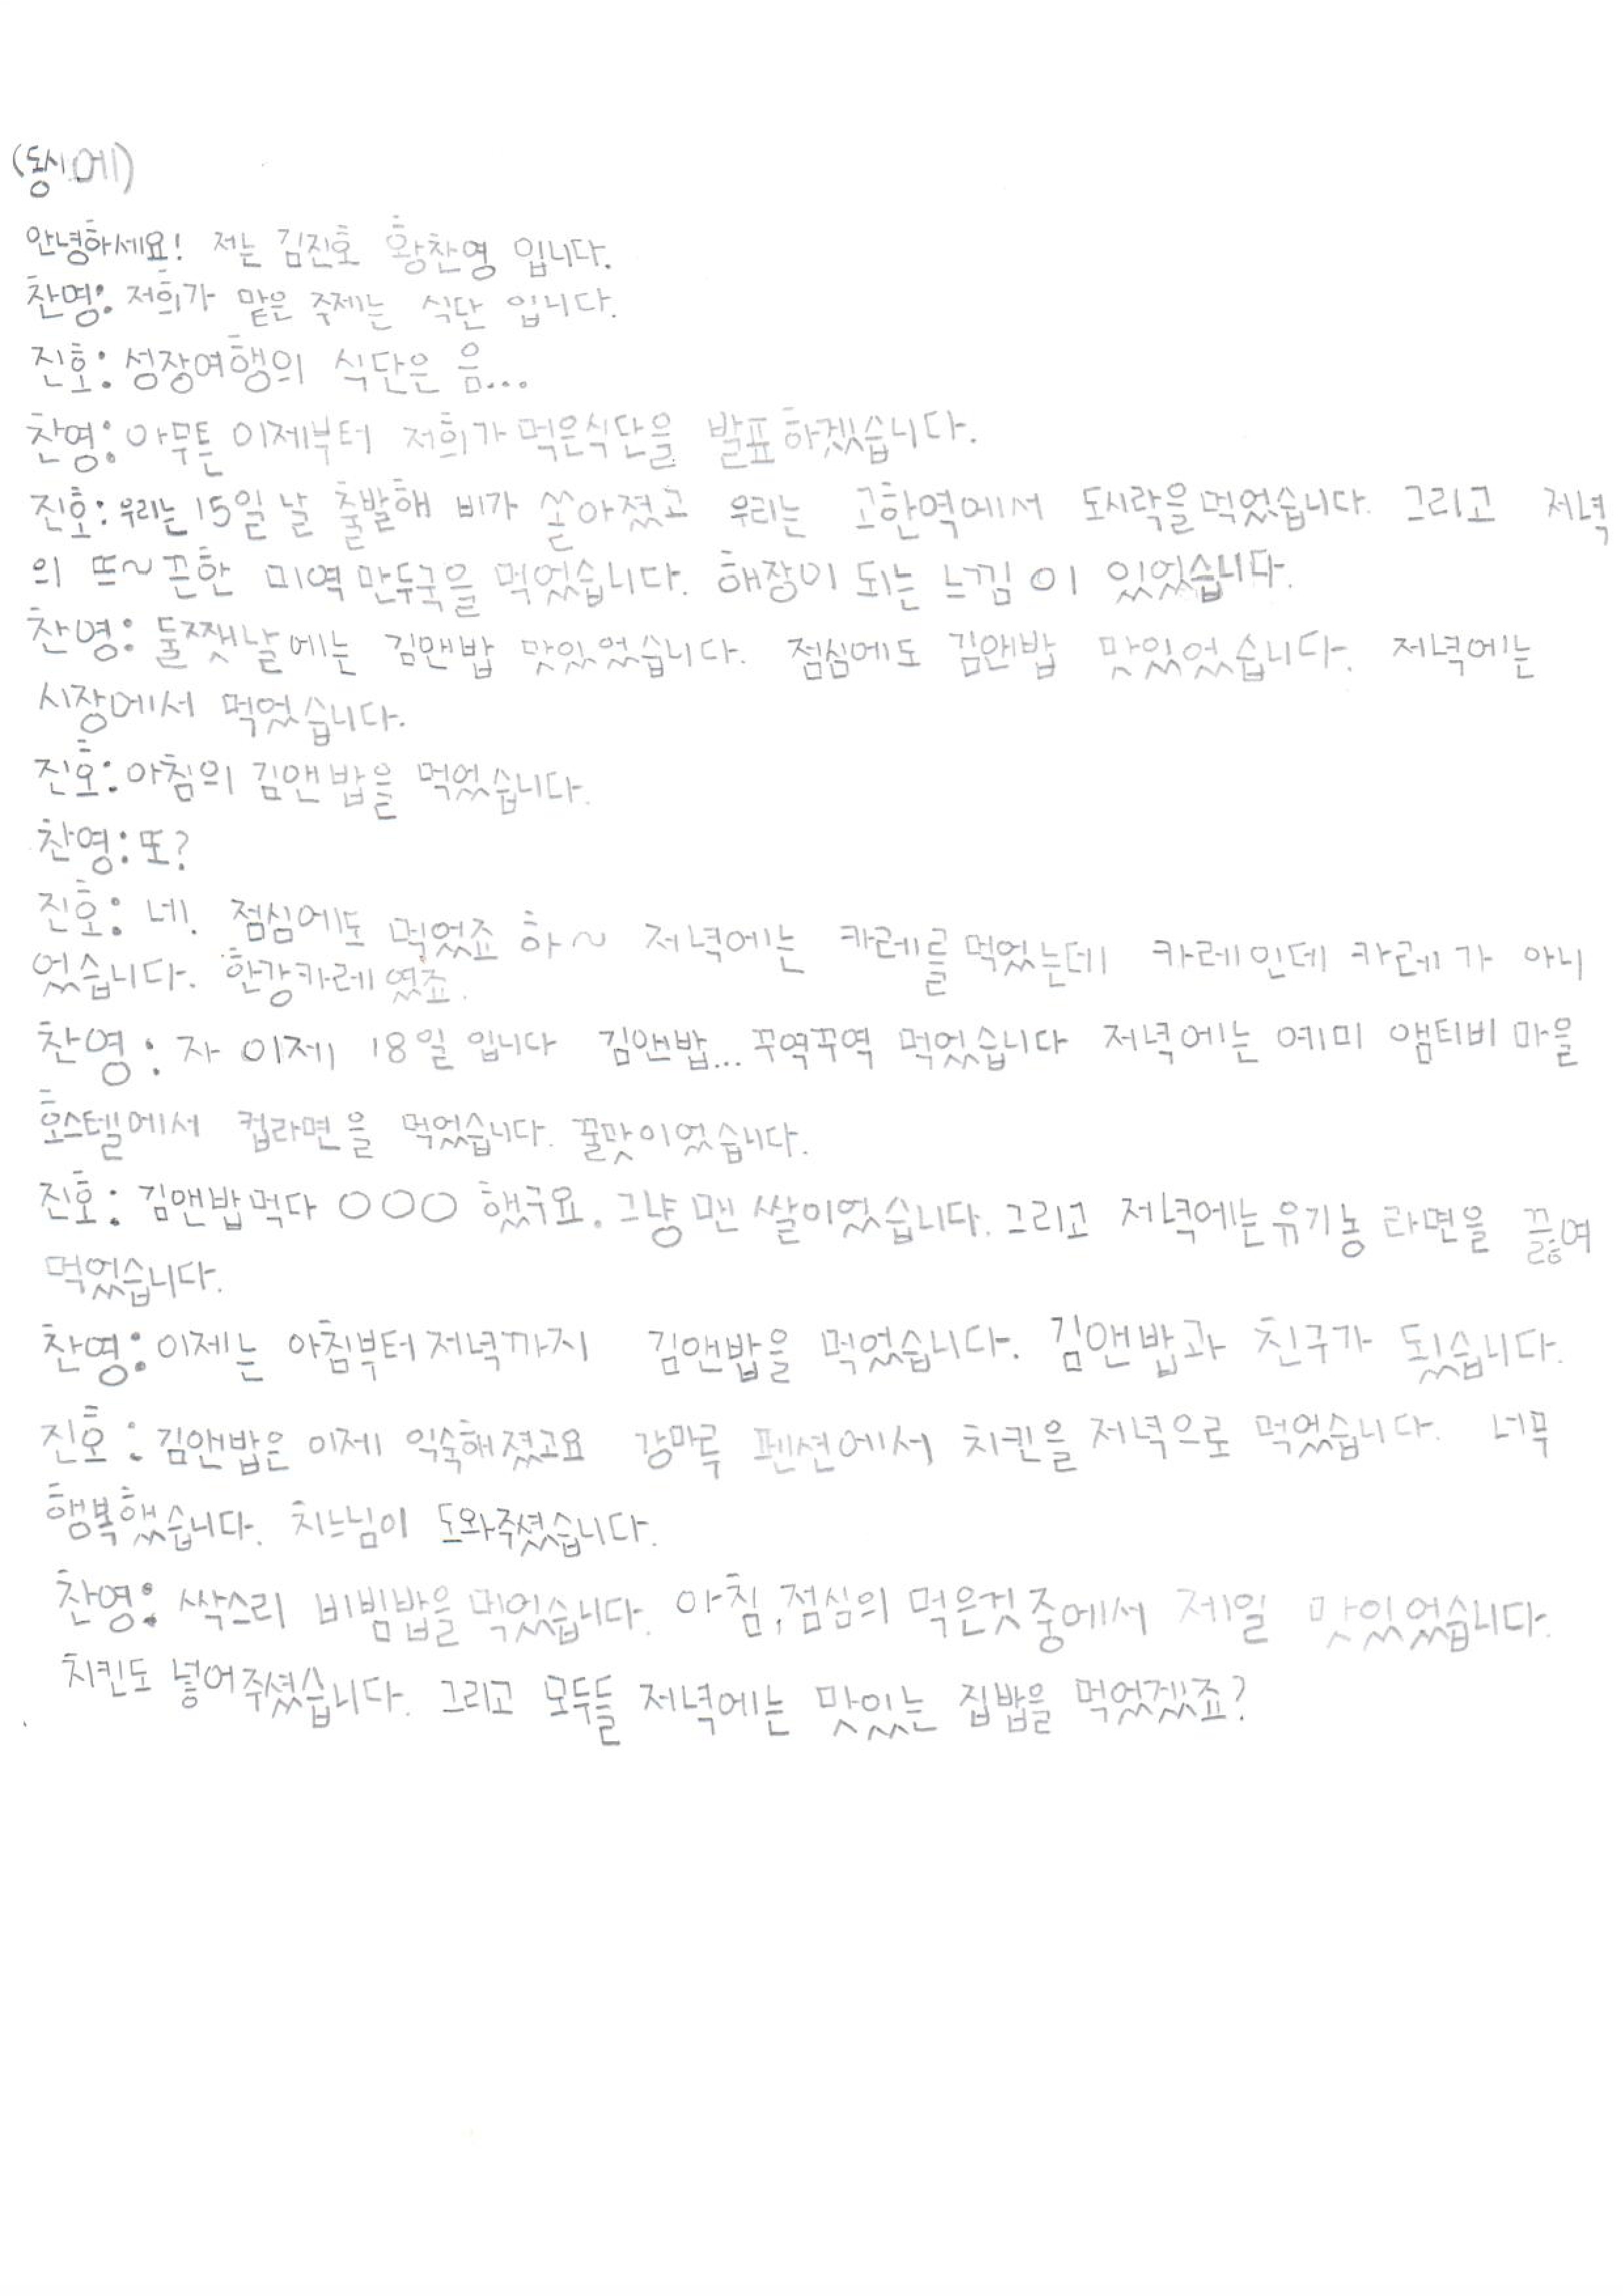 (동시에)
안녕하세요! 저는 김진호 황찬영 입니다.
찬영: 저희가 맡은 주제는 식단 입니다.
진호: 성장여행의 식단은 음...
찬영: 아무튼 이제부터 저희가 먹은식단을 발표하겠습니다.
진호: 우리는 15일 날 출발해 비가 쏟아졌고 우리는 고한역에서 도시락을 먹었습니다. 그리고 저녁
의 뜨~끈한 미역만두국을 먹었습니다. 해장이 되는 느낌이 있었습니다.
찬영: 둘쨋날에는 김앤밥 맛있었습니다. 점심에도 김앤밥 맛있었습니다. 저녁에는
시장에서 먹었습니다.
진호: 아침의 김앤밥을 먹었습니다.
찬영: 또?
진호: 네. 점심에도 먹었죠 하~ 저녁에는 카레를 먹었는데 카레인데 카레가 아니
었습니다. 한강카레였죠.
찬영: 자 이제 18일 입니다 김앤밥... 꾸역꾸역 먹었습니다 저녁에는 예미 앰티비 마을
호스텔에서 컵라면을 먹었습니다. 꿀맛이었습니다.
진호: 김앤밥먹다 ○○○ 했구요. 그냥 맨 쌀이었습니다. 그리고 저녁에는 유기농 라면을 끓여
먹었습니다.
찬영: 이제는 아침부터 저녁까지 김앤밥을 먹었습니다. 김앤밥과 친구가 됬습니다.
진호: 김앤밥은 이제 익숙해졌고요 강마루 펜션에서 치킨을 저녁으로 먹었습니다. 너무
행복했습니다. 치느님이 도와주셨습니다.
찬영: 싹스리 비빔밥을 먹었습니다. 아침, 점심의 먹은것 중에서 제일 맛있었습니다.
치킨도 넣어주셨습니다. 그리고 모두들 저녁에는 맛있는 집밥을 먹었겠죠?